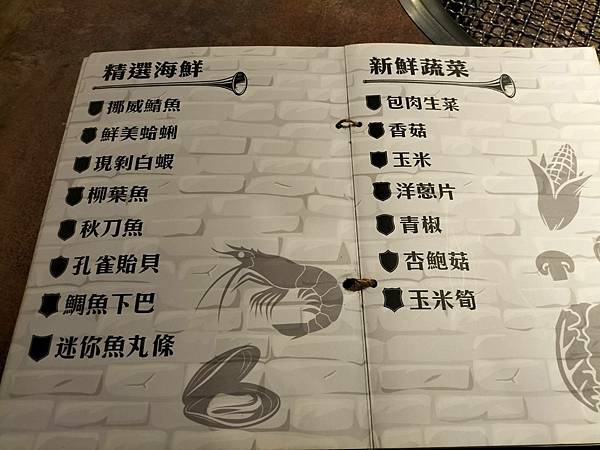 精選海鮮
挪威鯖魚
鮮美蛤蜊
現剝白蝦
柳葉魚
秋刀魚
孔雀貽貝
鯛魚下巴
迷你魚丸條
新鮮蔬菜
包肉生菜
香菇
玉米
洋蔥片
青椒
杏鮑菇
玉米筍